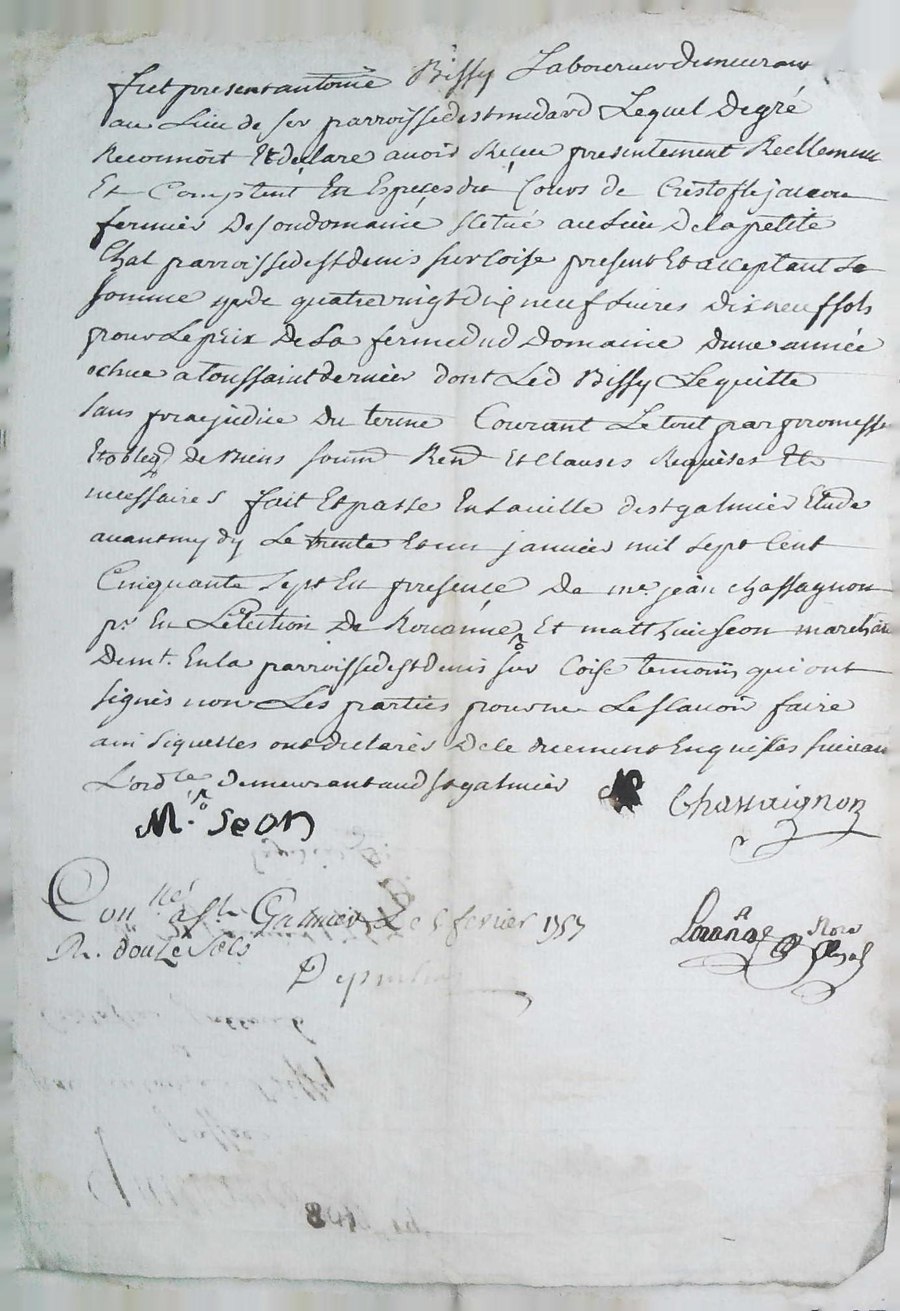 fut present antoine Bissy Laboureur demeurant
au Lieu de ser parroisse de st medard Lequel de gré
Reconnoit Et declare avoir Receu presentement Reellement
Et Comptent En Especes du Cours de Cristofle
fermier de son domaine scitué au Lieu de la petite
Chal parroisse de st denis sur Coise present Et acceptant La
somme de quatrevingt dix neuf Livres dix neuf sols
pour Le prix de La ferme dud Domaine dune année
echue a toussaint dernier dont Led Bissy Le quitte
sans prejudice du terme Courant Le tout par promesse
Et oblig de biens soum Ren Et Clauses Requises Et
necessaires fait Et passé En La ville de st galmier Etude
avant mydy Le trente Et un janvier mil sept Cent
Cinquante sept En presence de me jean chassagnon
pr En L'election de Roüanne Et matthieu seon marchan
demt. En la parroisse de st denis sur Coise temoins qui ont
signés non Les parties pour ne Le scavoir faire
ainsi quelles ont declarés de ce duement Enquises suivan
L'ordce demeurant aud st galmier
M. seon Chassaignon
Con.llé a St Galmier Le 5 fevrier 1757
R. douze sols
108